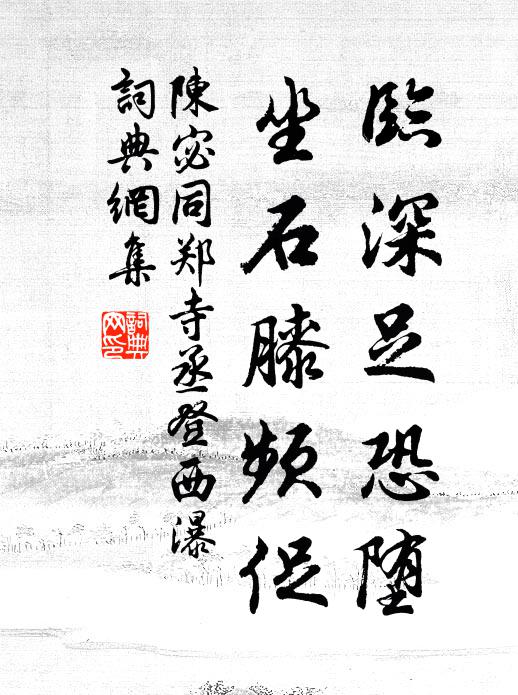 臨深足恐堕
坐石膝頻促
陳宓同郑寺丞登西瀑
詞典網集
詞典网印